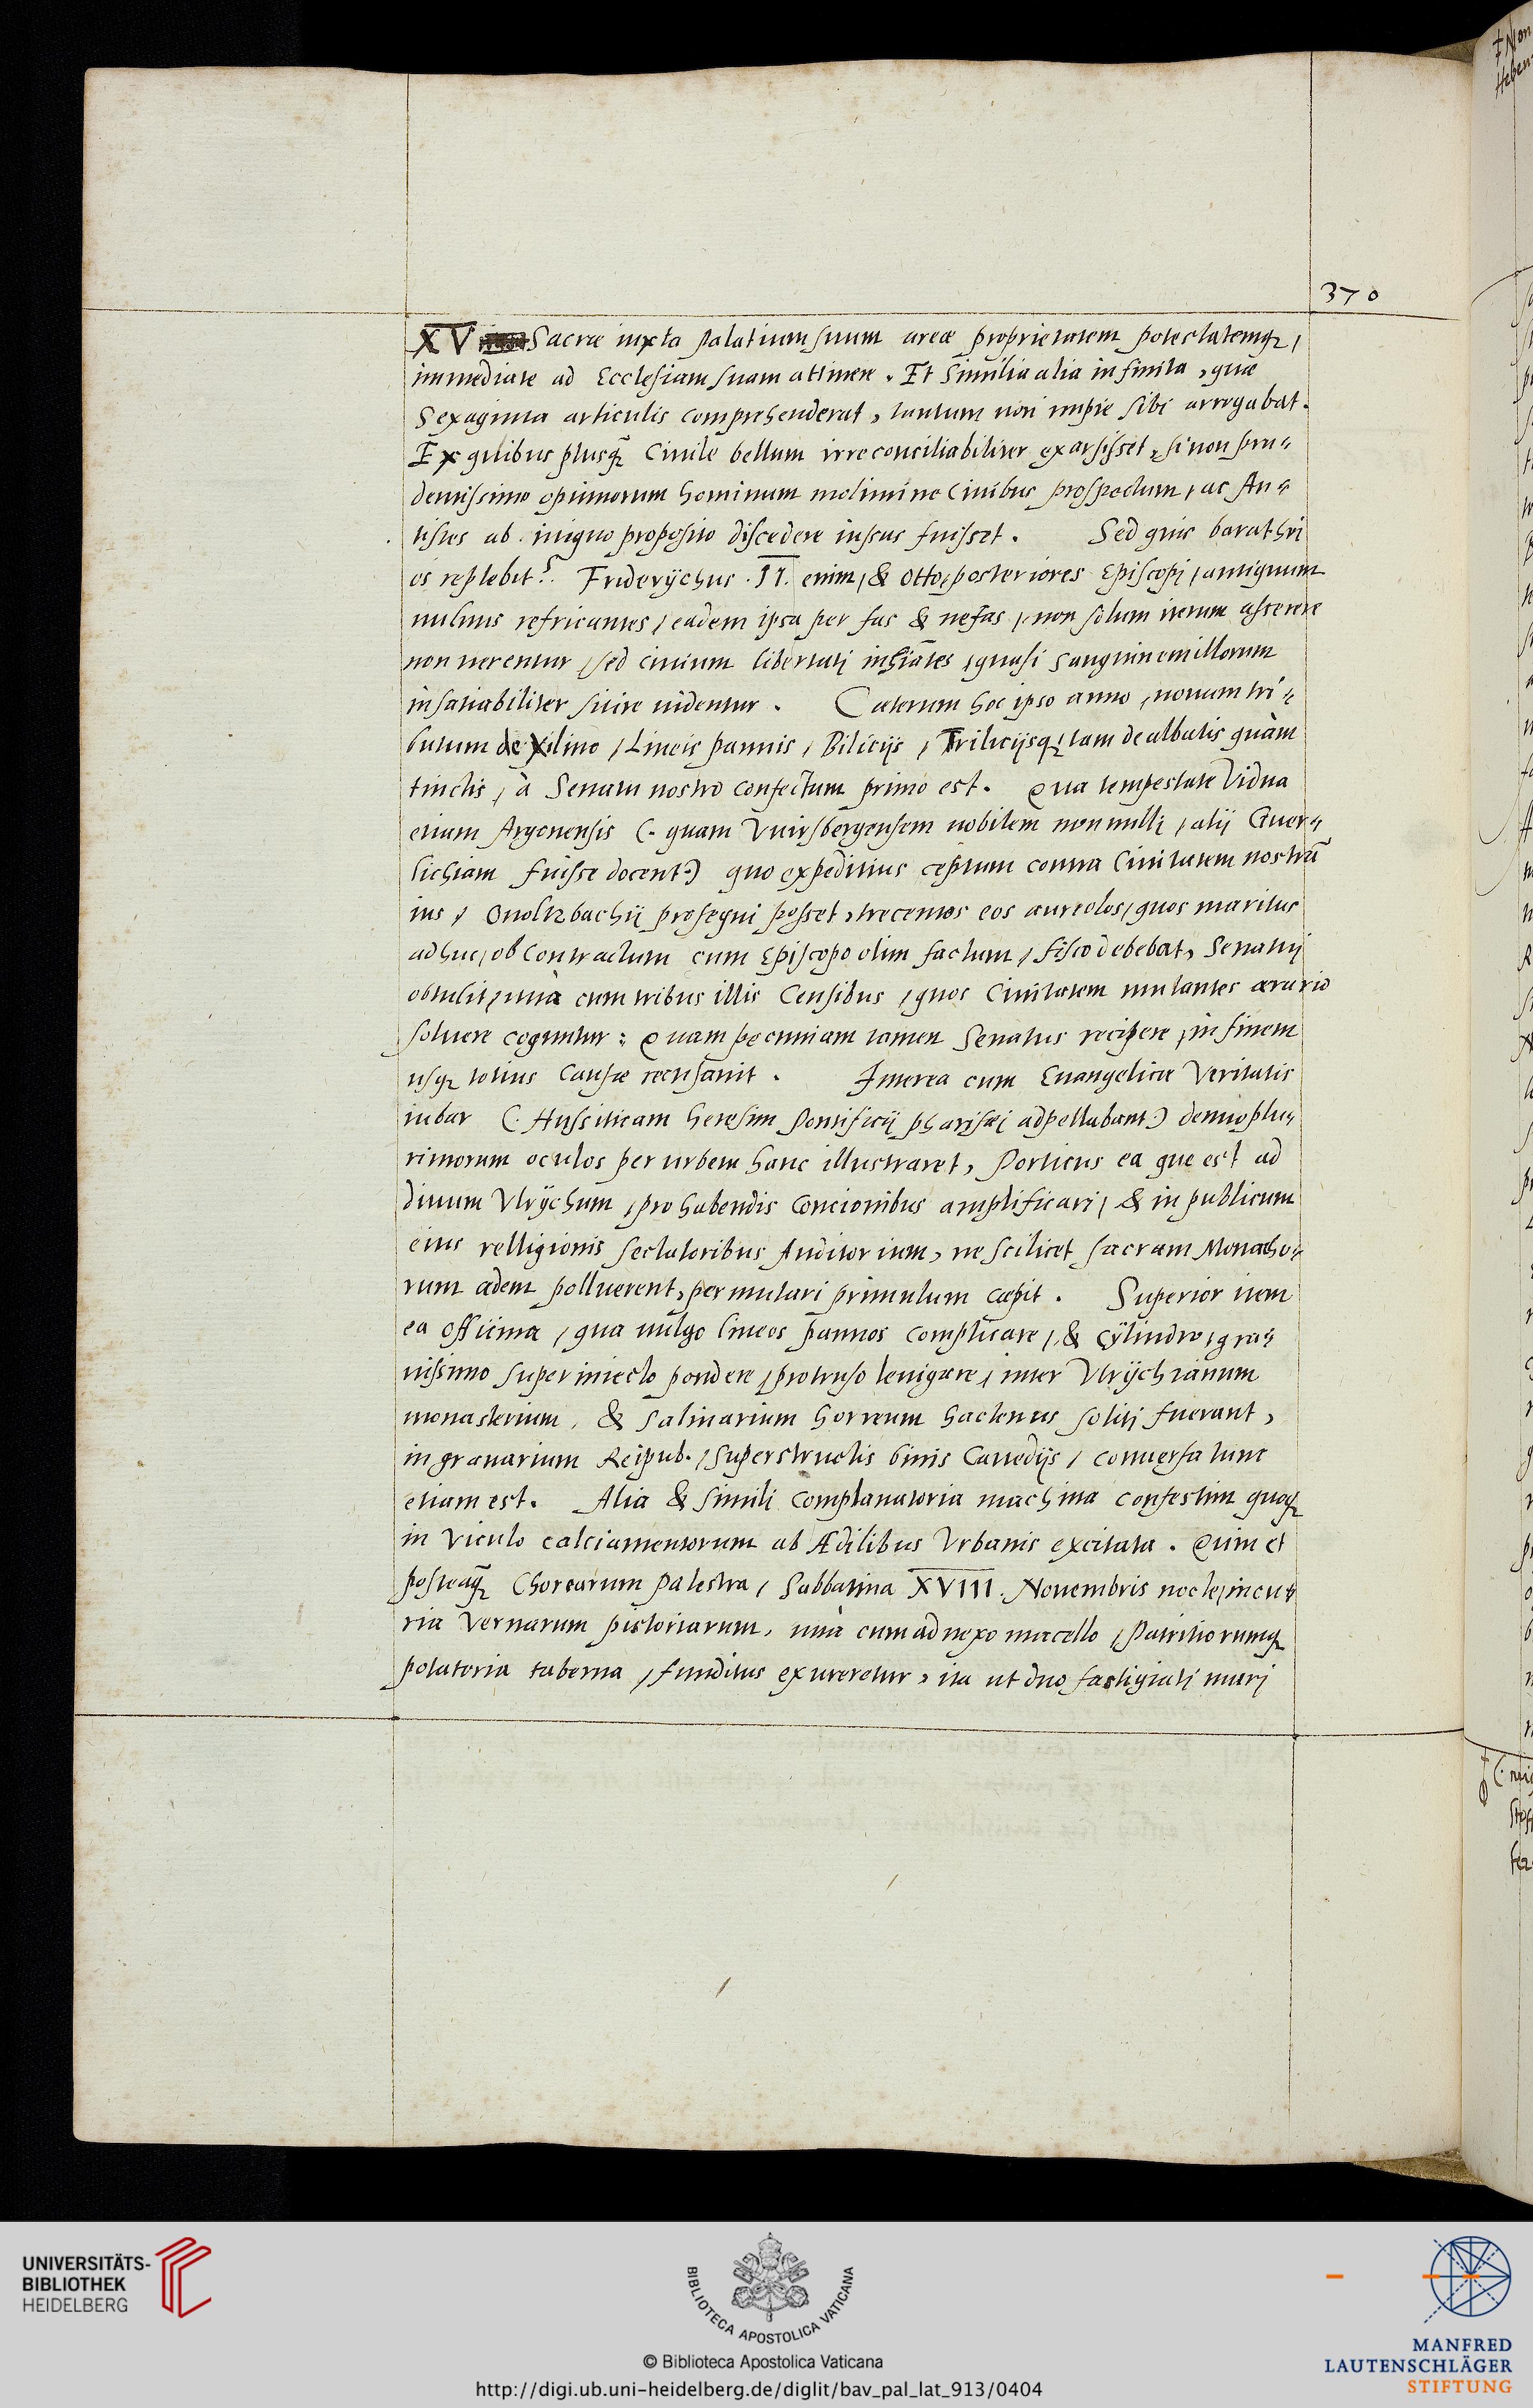 370
X̅V̅ Sacræ iuxta Palatium suum areæ proprietatem potestatemq,
immediate ad Ecclesiam suam attinere. Et Similia alia infinita, quæ
Sexaginta articulis comprehenderat, tantum non impie sibi arrogabat.
Ex quibus plusq̃ Ciuile bellum irreconciliabiliter exarsisset, si non pru=
dentissimo optimorum hominum molimine Ciuibus prospectum, ac An=
tistes ab iniquo proposito discedere iussus fuisset. Sed quis barathri
os replebit? Friderÿchus .II. enim, & Otto, posteriores Episcopi, antiquum
uulnus refricantes, eadem ipsa per fas & nefas, non solum iterum asserere
non uerentur, sed ciuium libertati inhiãtes, quasi Sanguinem illorum
insatiabiliter sitire uidentur. Cæterum hoc ipso anno, nouum tri=
butum de Xilino, Lineis pannis, Bilicijs, Trilicijsq, tam dealbatis quàm
tinctis, à Senatu nostro confectum primo est. Qua tempestate Vidua
etiam Argonensis (. quam Vuirsbergensem nobilem nonnulli, alij Guer=
lichiam fuisse docent.) quo expeditius ceptum contra Ciuitatem nostrã
ius, Onoltzbachij prosequi posset, trecentos eos aureolos, quos maritus
adhuc, ob Contractum cum Episcopo olim factum, fisco debebat, Senatuj
obtulit, unà cum tribus illis Censibus, quos Ciuitatem mutantes ærario
soluere coguntur: Quam pecuniam tamen Senatus recipere, in finem
usq totius Causæ recusauit. Interea cum Euangelicæ Veritatis
iubar (. Hussiticam heresim Pontificij pharisæi adpellabant.) denuo plu=
rimorum oculos per urbem hanc illustraret, Porticus ea que est ad
diuum Vlrÿchum, pro habendis Concionibus amplificari, & in publicum
eius relligionis sectatoribus Auditorium, ne scilicet sacram Monacho=
rum ædem polluerent, permutari primulum cæpit. Superior item
ea officina, qua uulgo lineos pannos complicare, & cÿlindro, gra=
uissimo superiniecto pondere, protruso leuigare, inter Vlrÿchianum
monasterium, & Salinarium horreum hactenus soliti fuerant,
in granarium Reipub., superstructis binis Cauedijs, conuersa tunc
etiam est. Alia & simili complanatoria machina confestim quoq
in Viculo calciamentorum ab Ædilibus Vrbanis excitata. Quin et
posteaq̃ Chorearum palestra, Sabbatina X̅V̅I̅I̅I̅. Nouembris nocte, incu=
ria Vernarum pistoriarum, unà cum adnexo macello, Patritiorumq
potatoria taberna, funditus exureretur, ita ut duo fastigiati muri
UNIVERSITÄTS-
BIBLIOTHEK
HEIDELBERG
BIBLIOTECA APOSTOLICA VATICANA
© Biblioteca Apostolica Vaticana
http://digi.ub.uni-heidelberg.de/diglit/bav_pal_lat_913/0404
MANFRED
LAUTENSCHLÄGER
STIFTUNG